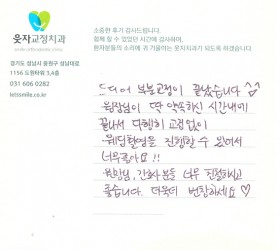 웃자교정치과
경기도 성남시 중원구 성남대로
1156 도원타워 3,4층
031 606 0282
letssmile.co.kr
소중한 후기 감사드립니다.
함께 할 수 있었던 시간에 감사하며,
환자분들의 소리에 귀 기울이는 웃자치과가 되도록 하겠습니다
드디어 부분교정이 끝났습니다 ^^
원장님이 딱 약속하신 시간내에
끝나서 다행히 교정없이
웨딩촬영을 진행할 수 있어서
너무좋아요!!
원장님, 간호사분들 너무 친절하고
좋습니다. 더욱더 번창하세요 ♡